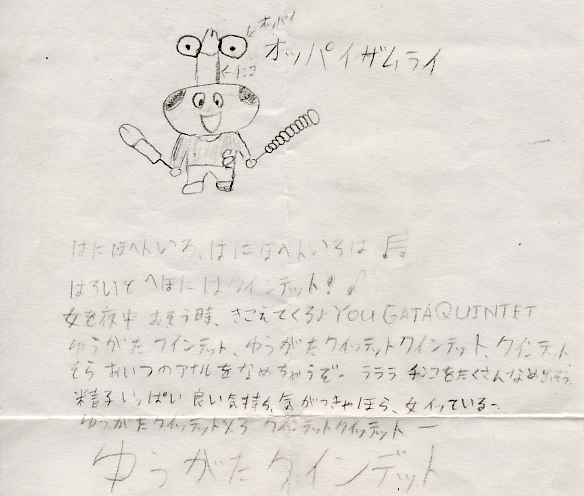 オッパイ
オッパイザムライ
チンコ
はにほへといろ、はにほへといろは♬
はろいとへほにはクインデット!♪
女を夜中おそう時、きこえてくるよYOUGATAQUINTET
ゆうがたクインデット、ゆうがたクインデットクインデット、クインデット
そらあいつのアナルをなめちゃうぞー ラララ チンコをたくさんなめ
精子いっぱい良い気持ち、気がつきゃほら、女イッているー
ゆうがたクインデット クインデットクインデットー
ゆうがたクインデット